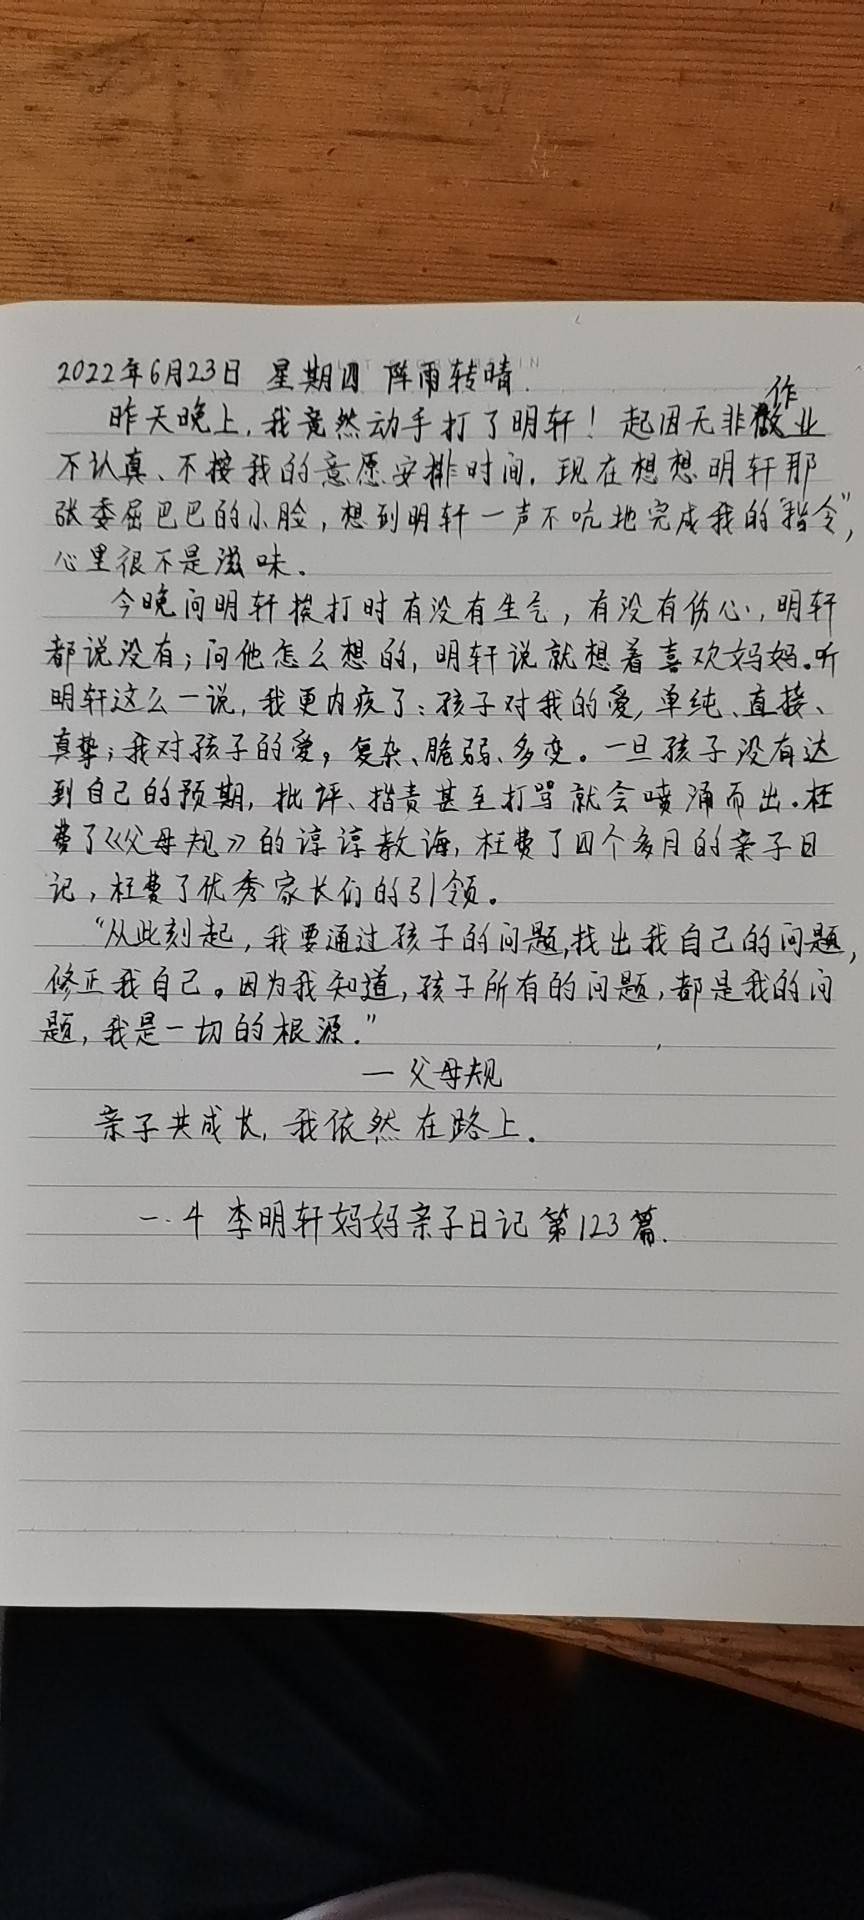 2022年6月23日 星期四 阵雨转晴.
昨天晚上,我竟然动手打了明轩!起因无非做作业
不认真、不按我的意愿安排时间.现在想想明轩那
张委屈巴巴的小脸,想到明轩一声不吭地完成我的“指令”,
心里很不是滋味.
今晚问明轩挨打时有没有生气,有没有伤心,明轩
都说没有;问他怎么想的,明轩说就想着喜欢妈妈.听
明轩这么一说,我更内疚了:孩子对我的爱,单纯、直接、
真挚;我对孩子的爱,复杂、脆弱、多变。一旦孩子没有达
到自己的预期,批评、指责甚至打骂就会喷涌而出.枉
费了《父母规》的谆谆教诲,枉费了四个多月的亲子日
记,枉费了优秀家长们的引领。
“从此刻起,我要通过孩子的问题,找出我自己的问题,
修正我自己。因为我知道,孩子所有的问题,都是我的问
题,我是一切的根源.”
—父母规
亲子共成长,我依然在路上.
一.4 李明轩妈妈亲子日记第123篇.